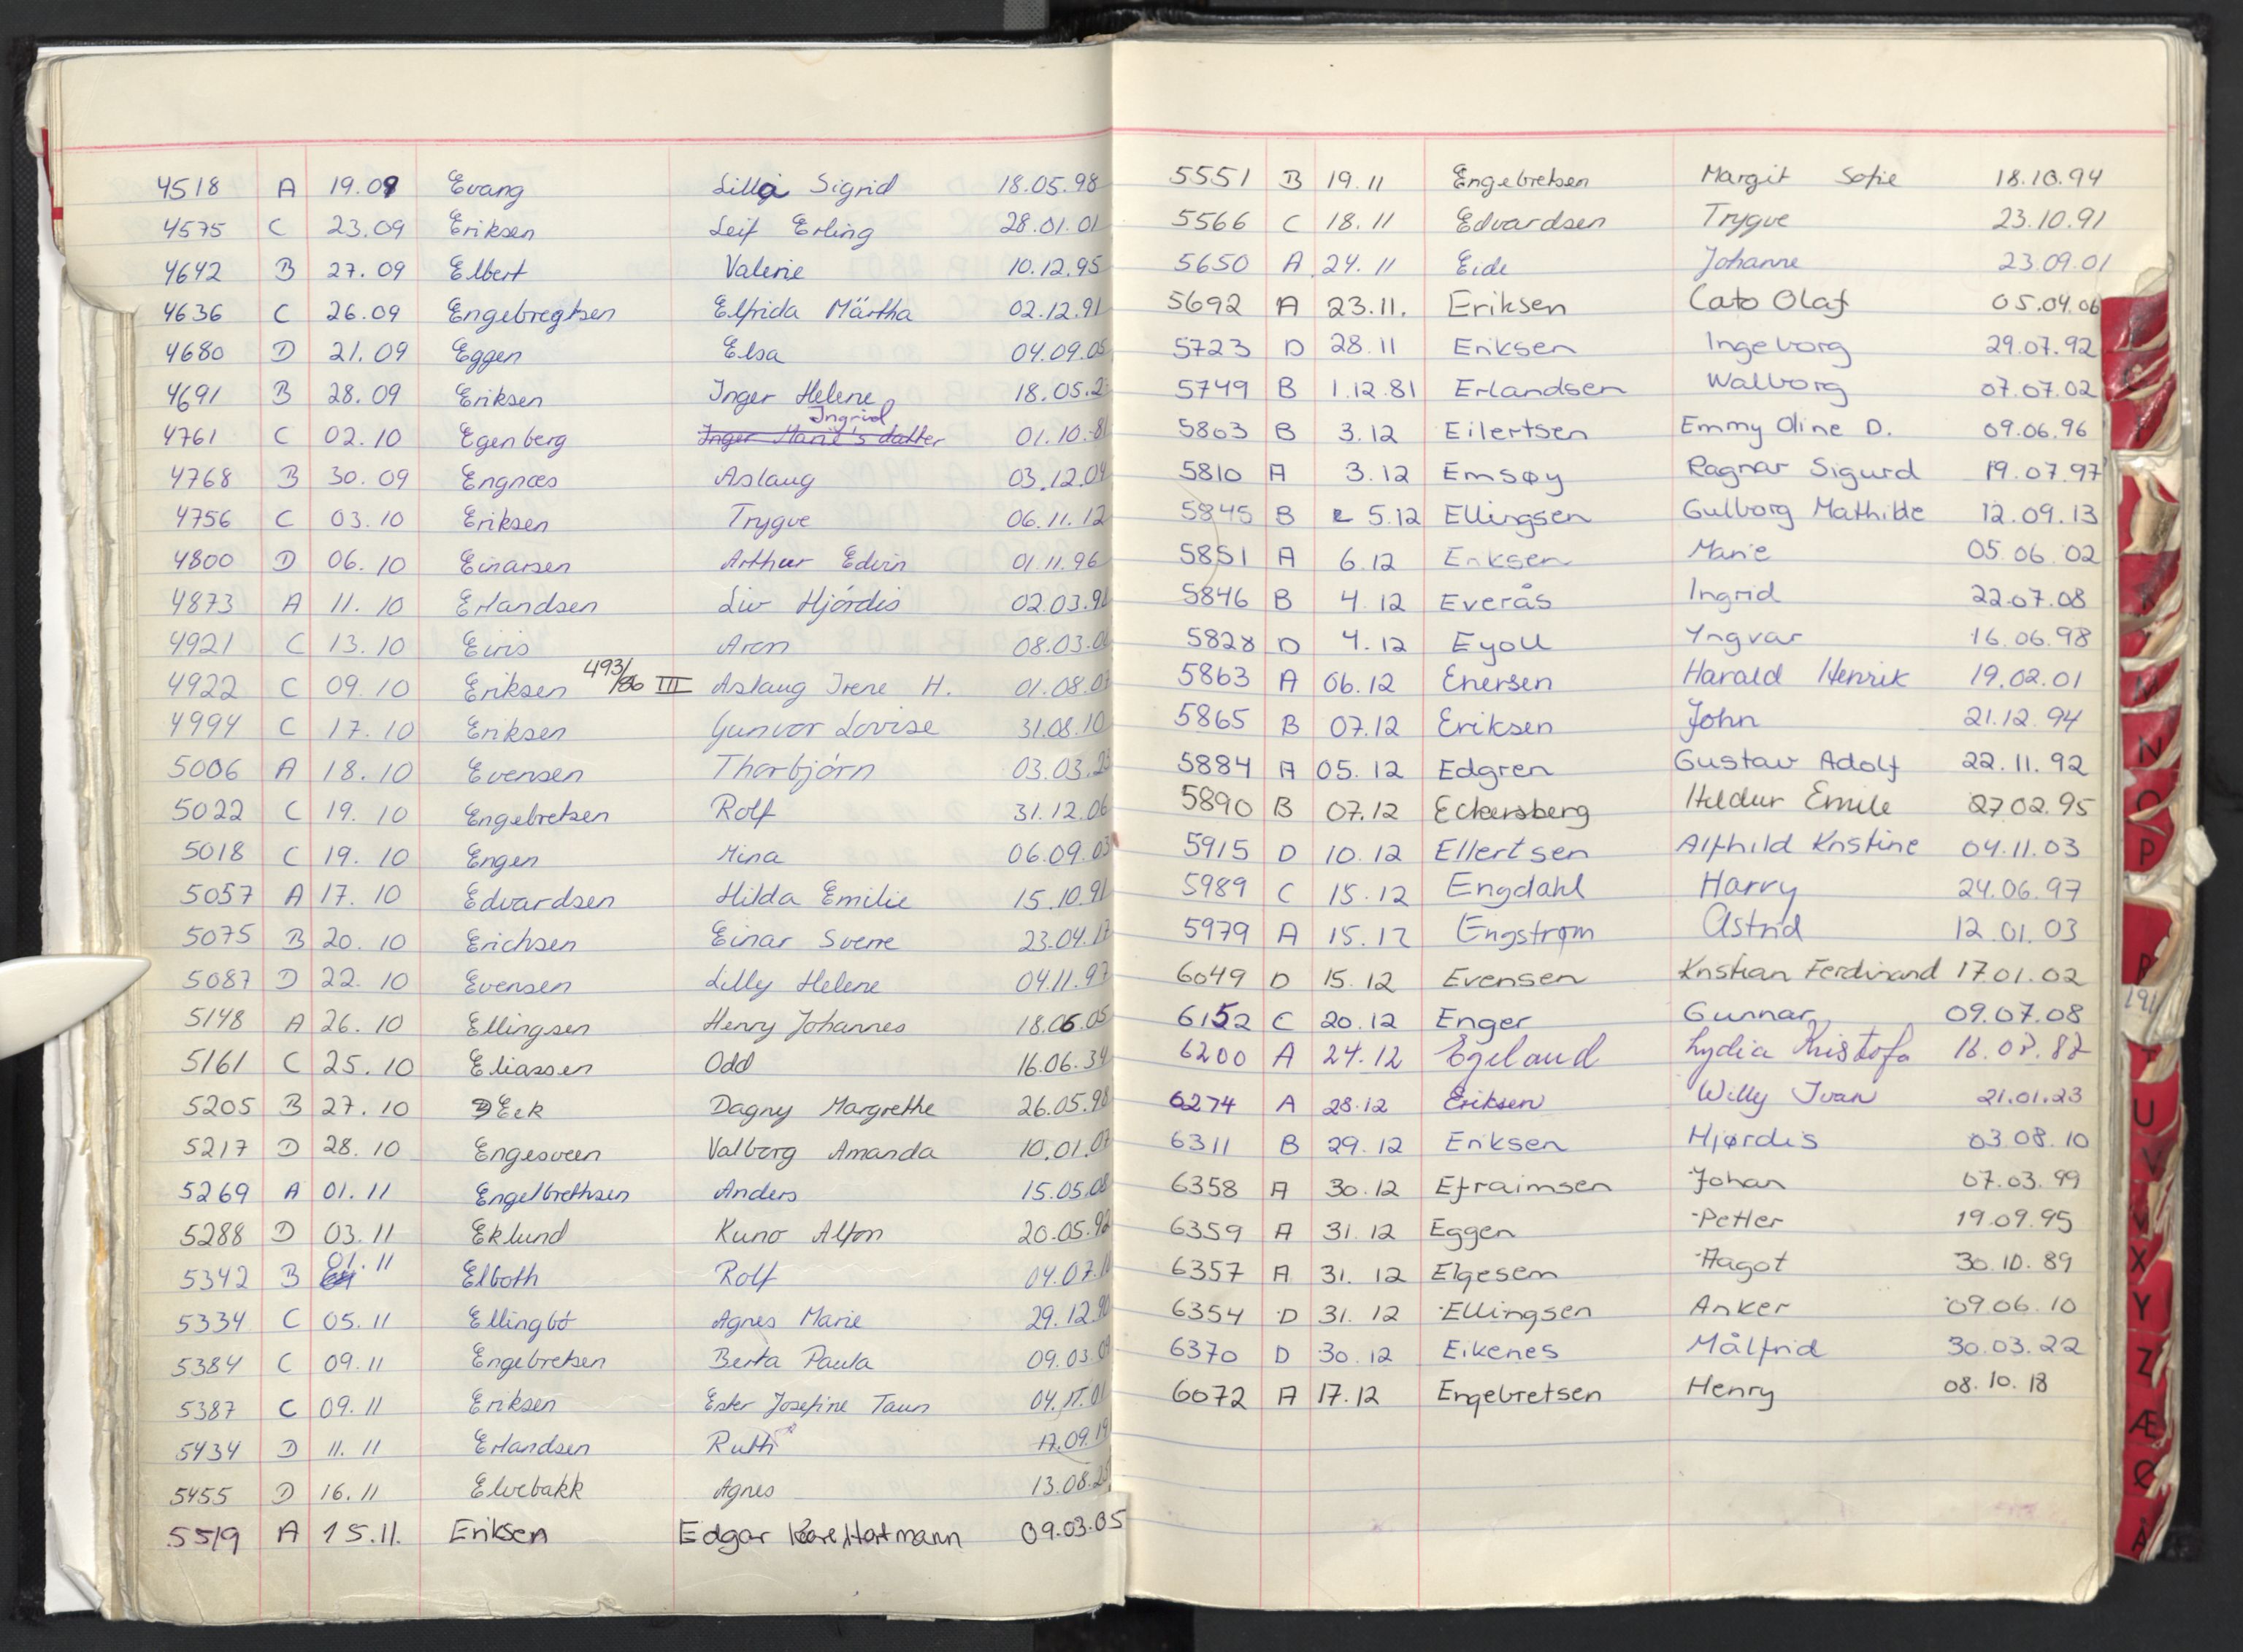 4518 A 19.09 Evang Lilla Sigrid 18.05.98
4575 C 23.09 Eriksen Leif Erling 28.01.01
4642 B 27.09 Elbert Valerie 10.12.95
4636 C 26.09 Engebregtsen Elfrida Märtha 02.12.91
4680 D 21.09 Eggen Elsa 04.09.05
4691 B 28.09 Eriksen Inger Helene 18.05.2
Ingrid
4761 C 02.10 Egenberg Inger Marie's datter 01.10.81
4768 B 30.09 Engnæs Aslaug 03.12.04
4756 C 03.10 Eriksen Trygve 06.11.12
4800 D 06.10 Einarsen Arthur Edvin 01.11.96
4873 A 11.10 Erlandsen Liv Hjördis 02.03.9
4921 C 13.10 Eiris Aron 08.03.0
4922 C 09.10 Eriksen 493/86 III Aslaug Irene H. 01.08.0
4994 C 17.10 Eriksen Gunvor Lovise 31.08.10
5006 A 18.10 Evensen Thorbjörn 03.03.23
5022 C 19.10 Engebretsen Rolf 31.12.06
5018 C 19.10 Engen Mina 06.09.03
5057 A 17.10 Edvardsen Hilda Emilie 15.10.91
5075 B 20.10 Erichsen Einar Sverre 23.04.17
5087 D 22.10 Evensen Lilly Helene 04.11.97
5148 A 26.10 Ellingsen Henry Johannes 18.06.05
5161 C 25.10 Eliassen Odd 16.06.34
5205 B 27.10 Eek Dagny Margrethe 26.05.98
5217 D 28.10 Engesveen Valborg Amanda 10.01.07
5269 A 01.11 Engelbrethsen Anders 15.05.08
5288 D 03.11 Eklund Kuno Alfon 20.05.92
01.11
5342 B Elboth Rolf 04.07.11
5334 C 05.11 Ellingbö Agnes Marie 29.12.90
5384 C 09.11 Engebretsen Berta Paula 09.03.09
5387 C 09.11 Eriksen Ester Josefine Taun 04.11.01
5434 D 11.11 Erlandsen Ruth 17.09.19
5455 D 16.11 Elvebakk Agnes 13.08.2
5519 A 15.11. Eriksen Edgar Kåre Hartmann 09.03.05
5551 B 19.11 Engebretsen Margit Sofie 18.10.94
5566 C 18.11 Edvardsen Trygve 23.10.91
5650 A 24.11 Eide Johanne 23.09.01
5692 A 23.11. Eriksen Cato Olaf 05.04.06
5723 D 28.11 Eriksen Ingeborg 29.07.92
5749 B 1.12.81 Erlandsen Walborg 07.07.02
5803 B 3.12 Eilertsen Emmy Oline D. 09.06.96
5810 A 3.12 Emsøy Ragnar Sigurd 19.07.97
5845 B 5.12 Ellingsen Gulborg Mathilde 12.09.13
5851 A 6.12 Eriksen Marie 05.06.02
5846 B 4.12 Everås Ingrid 22.07.08
5828 D 4.12 Eyoll Yngvar 16.06.98
5863 A 06.12 Enersen Harald Henrik 19.02.01
5865 B 07.12 Eriksen John 21.12.94
5884 A 05.12 Edgren Gustav Adolf 22.11.92
5890 B 07.12 Eckersberg Heldur Emile 27.02.95
5915 D 10.12 Ellertsen Alfhild Kristine 04.11.03
5989 C 15.12 Engdahl Harry 24.06.97
5979 A 15.12 Engstrøm Astrid 12.01.03
6049 D 15.12 Evensen Kristian Ferdinand 17.01.02
6152 C 20.12 Enger Gunnar 09.07.08
6200 A 24.12 Egeland Lydia Kristofa 18.08.82
6274 A 28.12 Eriksen Willy Ivan 21.01.23
6311 B 29.12 Eriksen Hjørdis 03.08.10
6358 A 30.12 Efraimsen Johan 07.03.99
6359 A 31.12 Eggen Petter 19.09.95
6357 A 31.12 Elgesem Aagot 30.10.89
6354 D 31.12 Ellingsen Anker 09.06.10
6370 D 30.12 Eikenes Målfrid 30.03.22
6072 A 17.12 Engebretsen Henry 08.10.18
N
O
P
R
U
V
X
Y
Z
Æ
Ø
Å